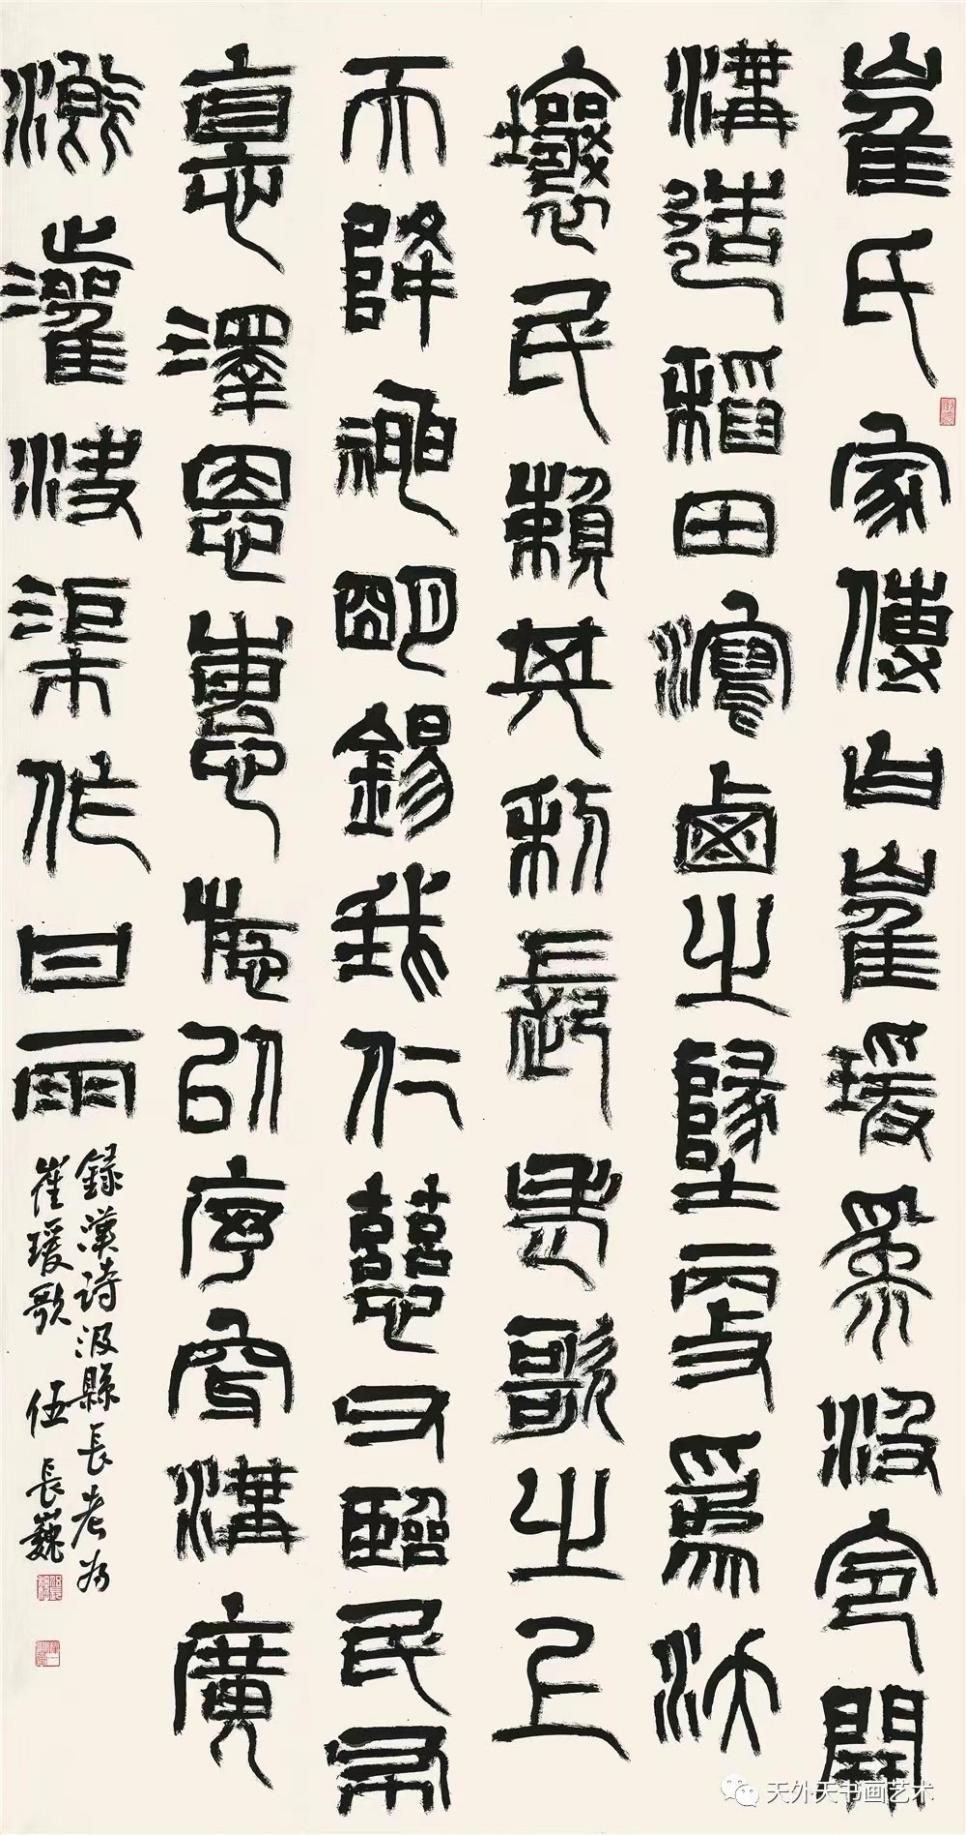 崔氏家傳曰崔瑗為汲令開
溝造稻田瀉鹵之墬更為沃
壤民賴其利長老歌之上
天降神明錫我仁慈父臨民布
悳澤恩惠施以序穿溝廣
溉灌決渠作甘雨
錄漢詩汲縣長老為
崔瑗歌 伍長巍
天外天书画艺术